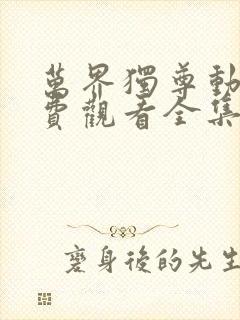 萬界獨尊動
費觀看全集
變身後的先生